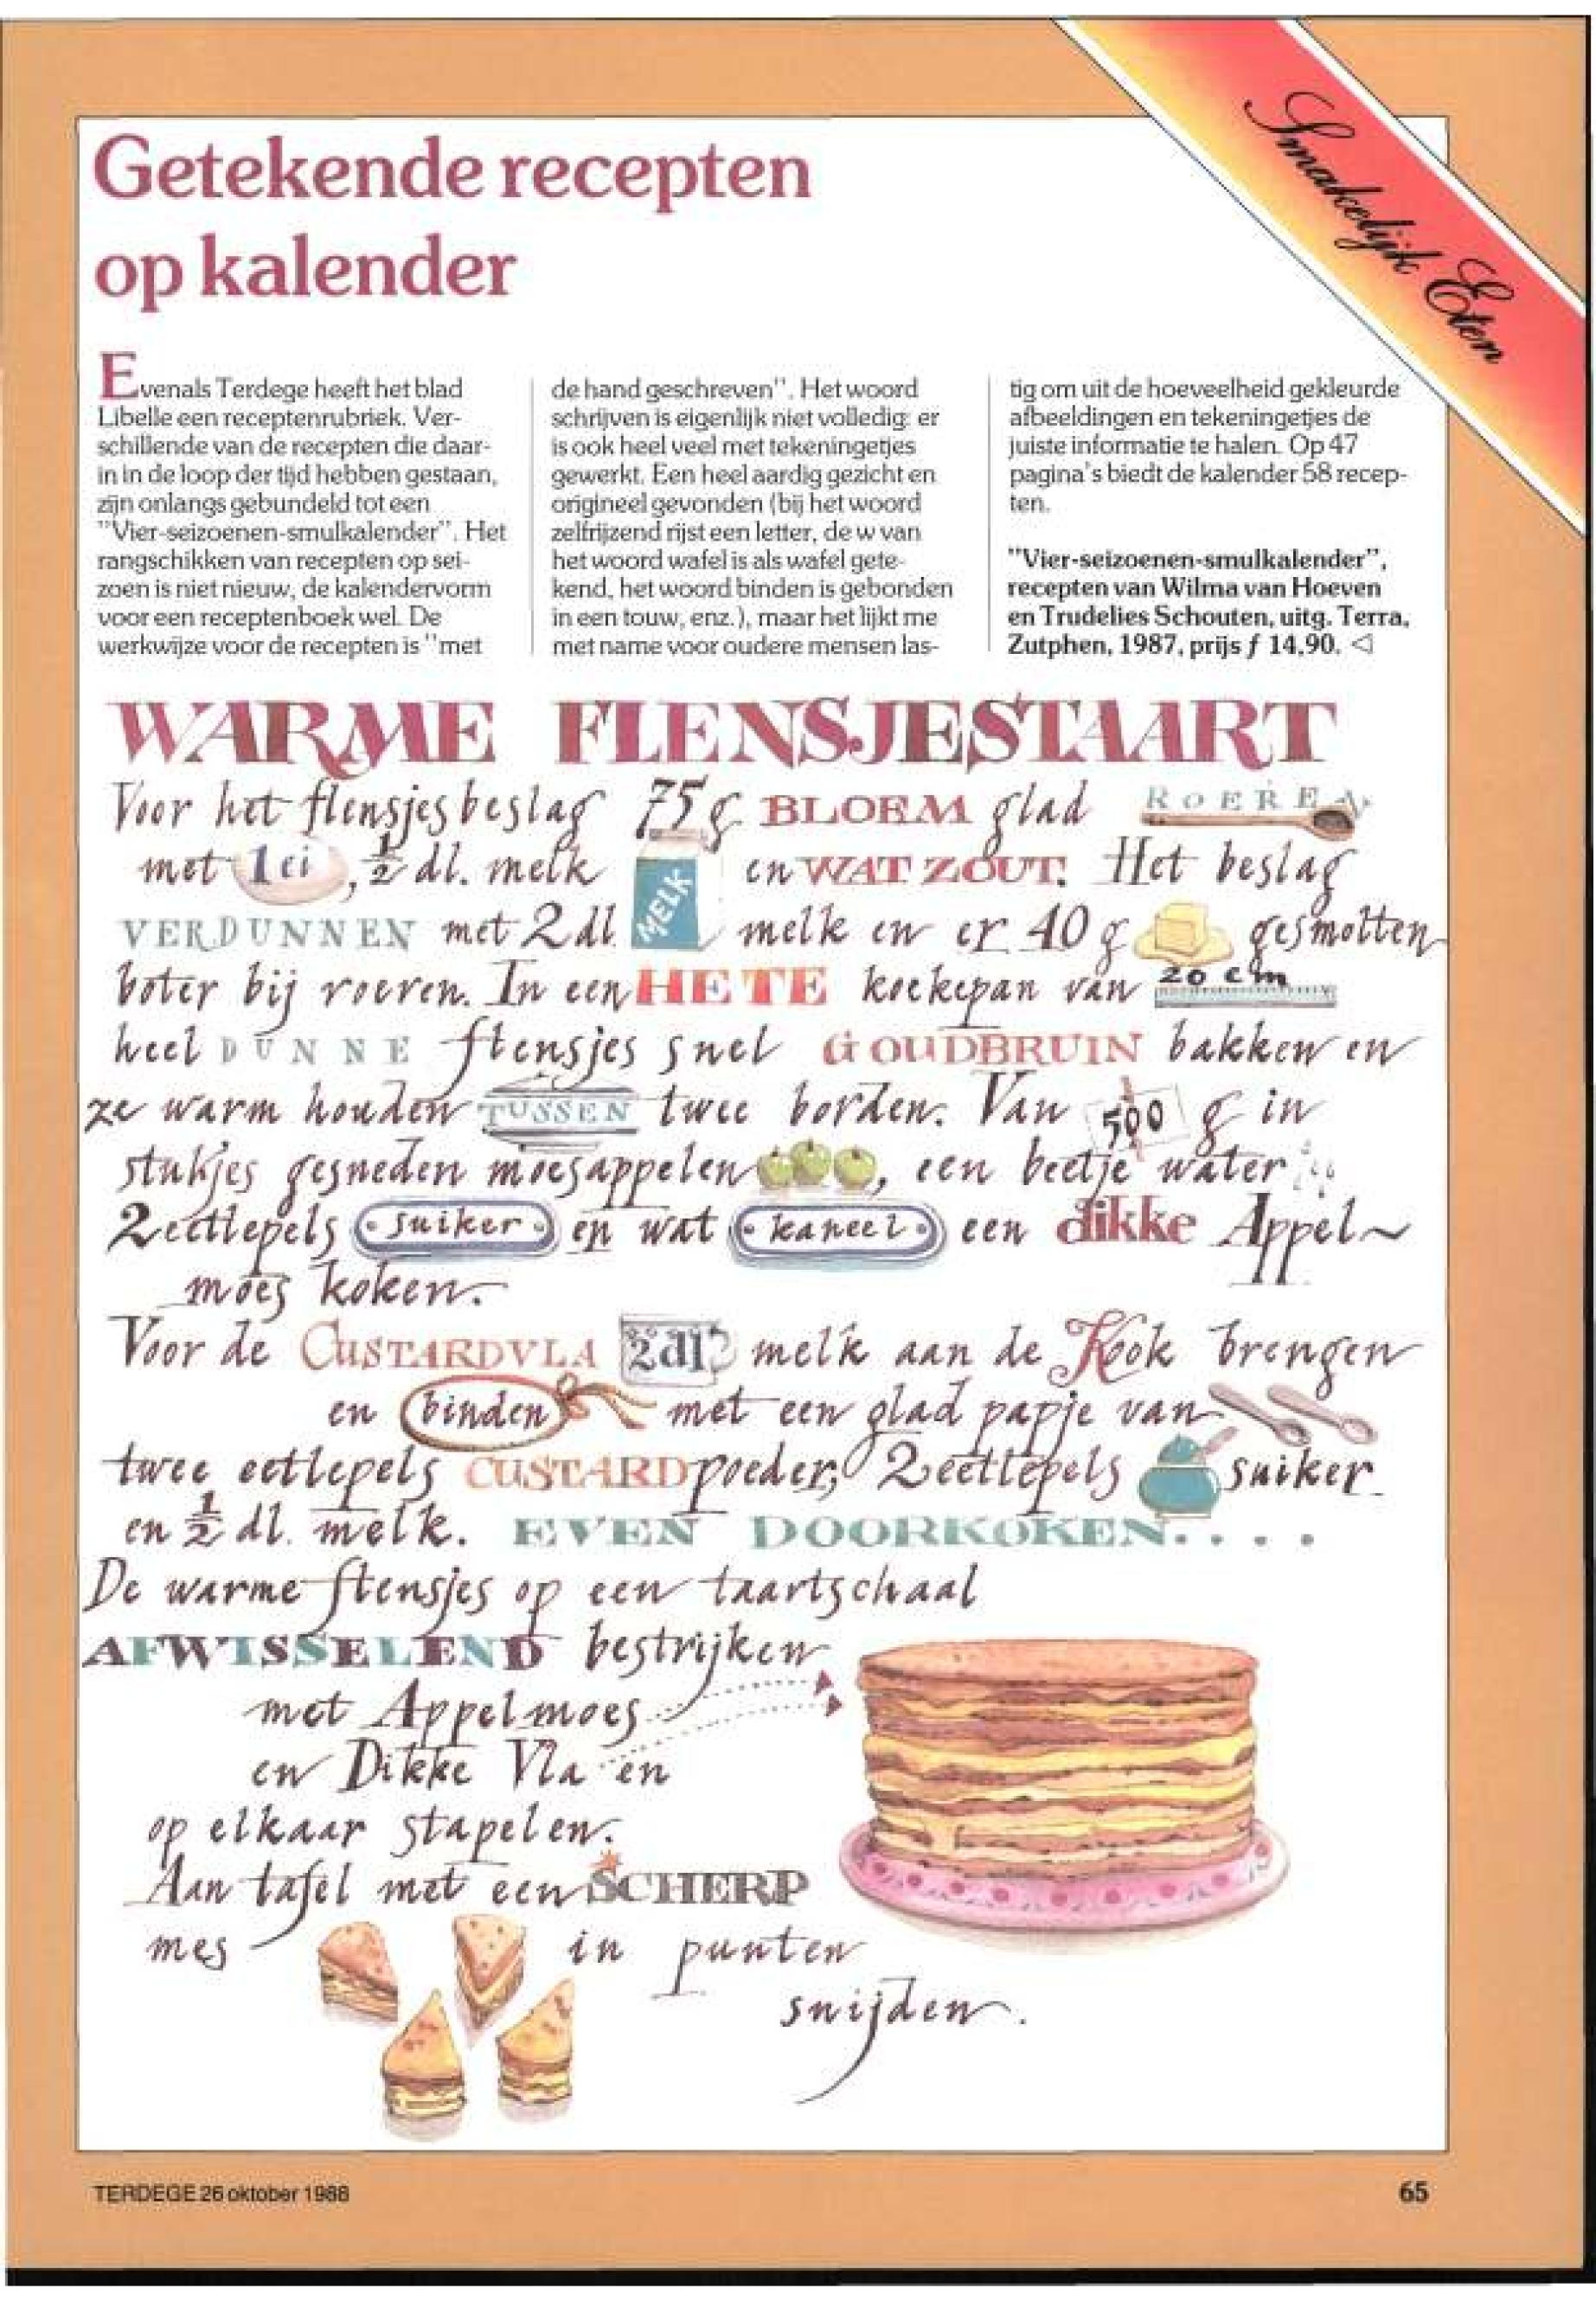 Smakelijk Eten
Getekende recepten
op kalender
Evenals Terdege heeft het blad
Libelle een receptenrubriek. Ver-
schillende van de recepten die daar-
in in de loop der tijd hebben gestaan,
zijn onlangs gebundeld tot een
"Vier-seizoenen-smulkalender". Het
rangschikken van recepten op sei-
zoen is niet nieuw, de kalendervorm
voor een receptenboek wel. De
werkwijze voor de recepten is "met
de hand geschreven". Het woord
schrijven is eigenlijk niet volledig: er
is ook heel veel met tekeningetjes
gewerkt. Een heel aardig gezicht en
origineel gevonden (bij het woord
zelfrijzend rijst een letter, de w van
het woord wafel is als wafel gete-
kend, het woord binden is gebonden
in een touw, enz.), maar het lijkt me
met name voor oudere mensen las-
tig om uit de hoeveelheid gekleurde
afbeeldingen en tekeningetjes de
juiste informatie te halen. Op 47
pagina's biedt de kalender 58 recep-
ten.
"Vier-seizoenen-smulkalender",
recepten van Wilma van Hoeven
en Trudelies Schouten, uitg. Terra,
Zutphen, 1987, prijs ƒ 14,90. ◁
WARME FLENSJESTAART
Voor het flensjesbeslag 75 g BLOEM glad ROEREN
met 1 ei, ½ dl. melk MELK en WAT ZOUT. Het beslag
VERDUNNEN met 2 dl. melk en er 40 g gesmolten
boter bij roeren. In een HETE koekepan van 20 cm
heel DUNNE flensjes snel GOUDBRUIN bakken en
ze warm houden TUSSEN twee borden. Van 500 g in
stukjes gesneden moesappelen, een beetje water
2 eetlepels suiker en wat kaneel een dikke Appel~
moes koken.
Voor de CUSTARDVLA 2dl melk aan de Kook brengen
en binden met een glad papje van
twee eetlepels CUSTARDpoeder, 2 eetlepels suiker
en ½ dl. melk. EVEN DOORKOKEN....
De warme flensjes op een taartschaal
AFWISSELEND bestrijken
met Appelmoes
en Dikke Vla en
op elkaar stapelen.
Aan tafel met een SCHERP
mes in punten
snijden.
TERDEGE 26 oktober 1988
65